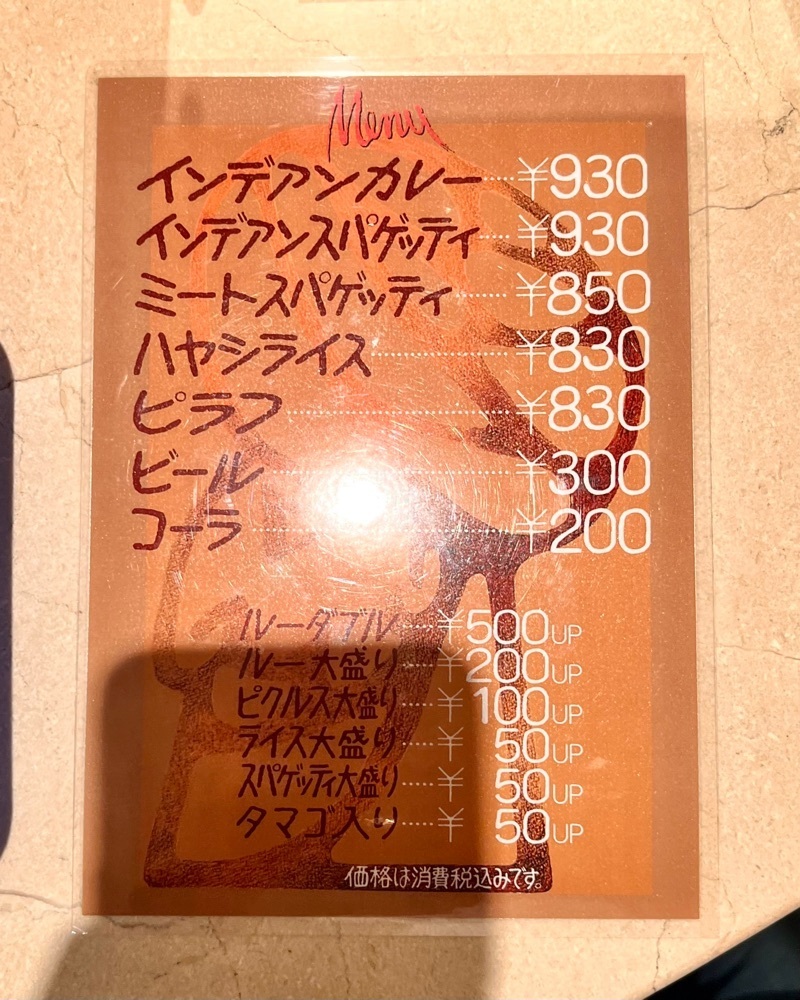 Menu
インデアンカレー……¥930
インデアンスパゲッティ……¥930
ミートスパゲッティ……¥850
ハヤシライス……¥830
ピラフ……¥830
ビール……¥300
コーラ……¥200
ルーダブル……¥500UP
ルー大盛り……¥200UP
ピクルス大盛り……¥100UP
ライス大盛り……¥50UP
スパゲッティ大盛り……¥50UP
タマゴ入り……¥50UP
価格は消費税込みです。